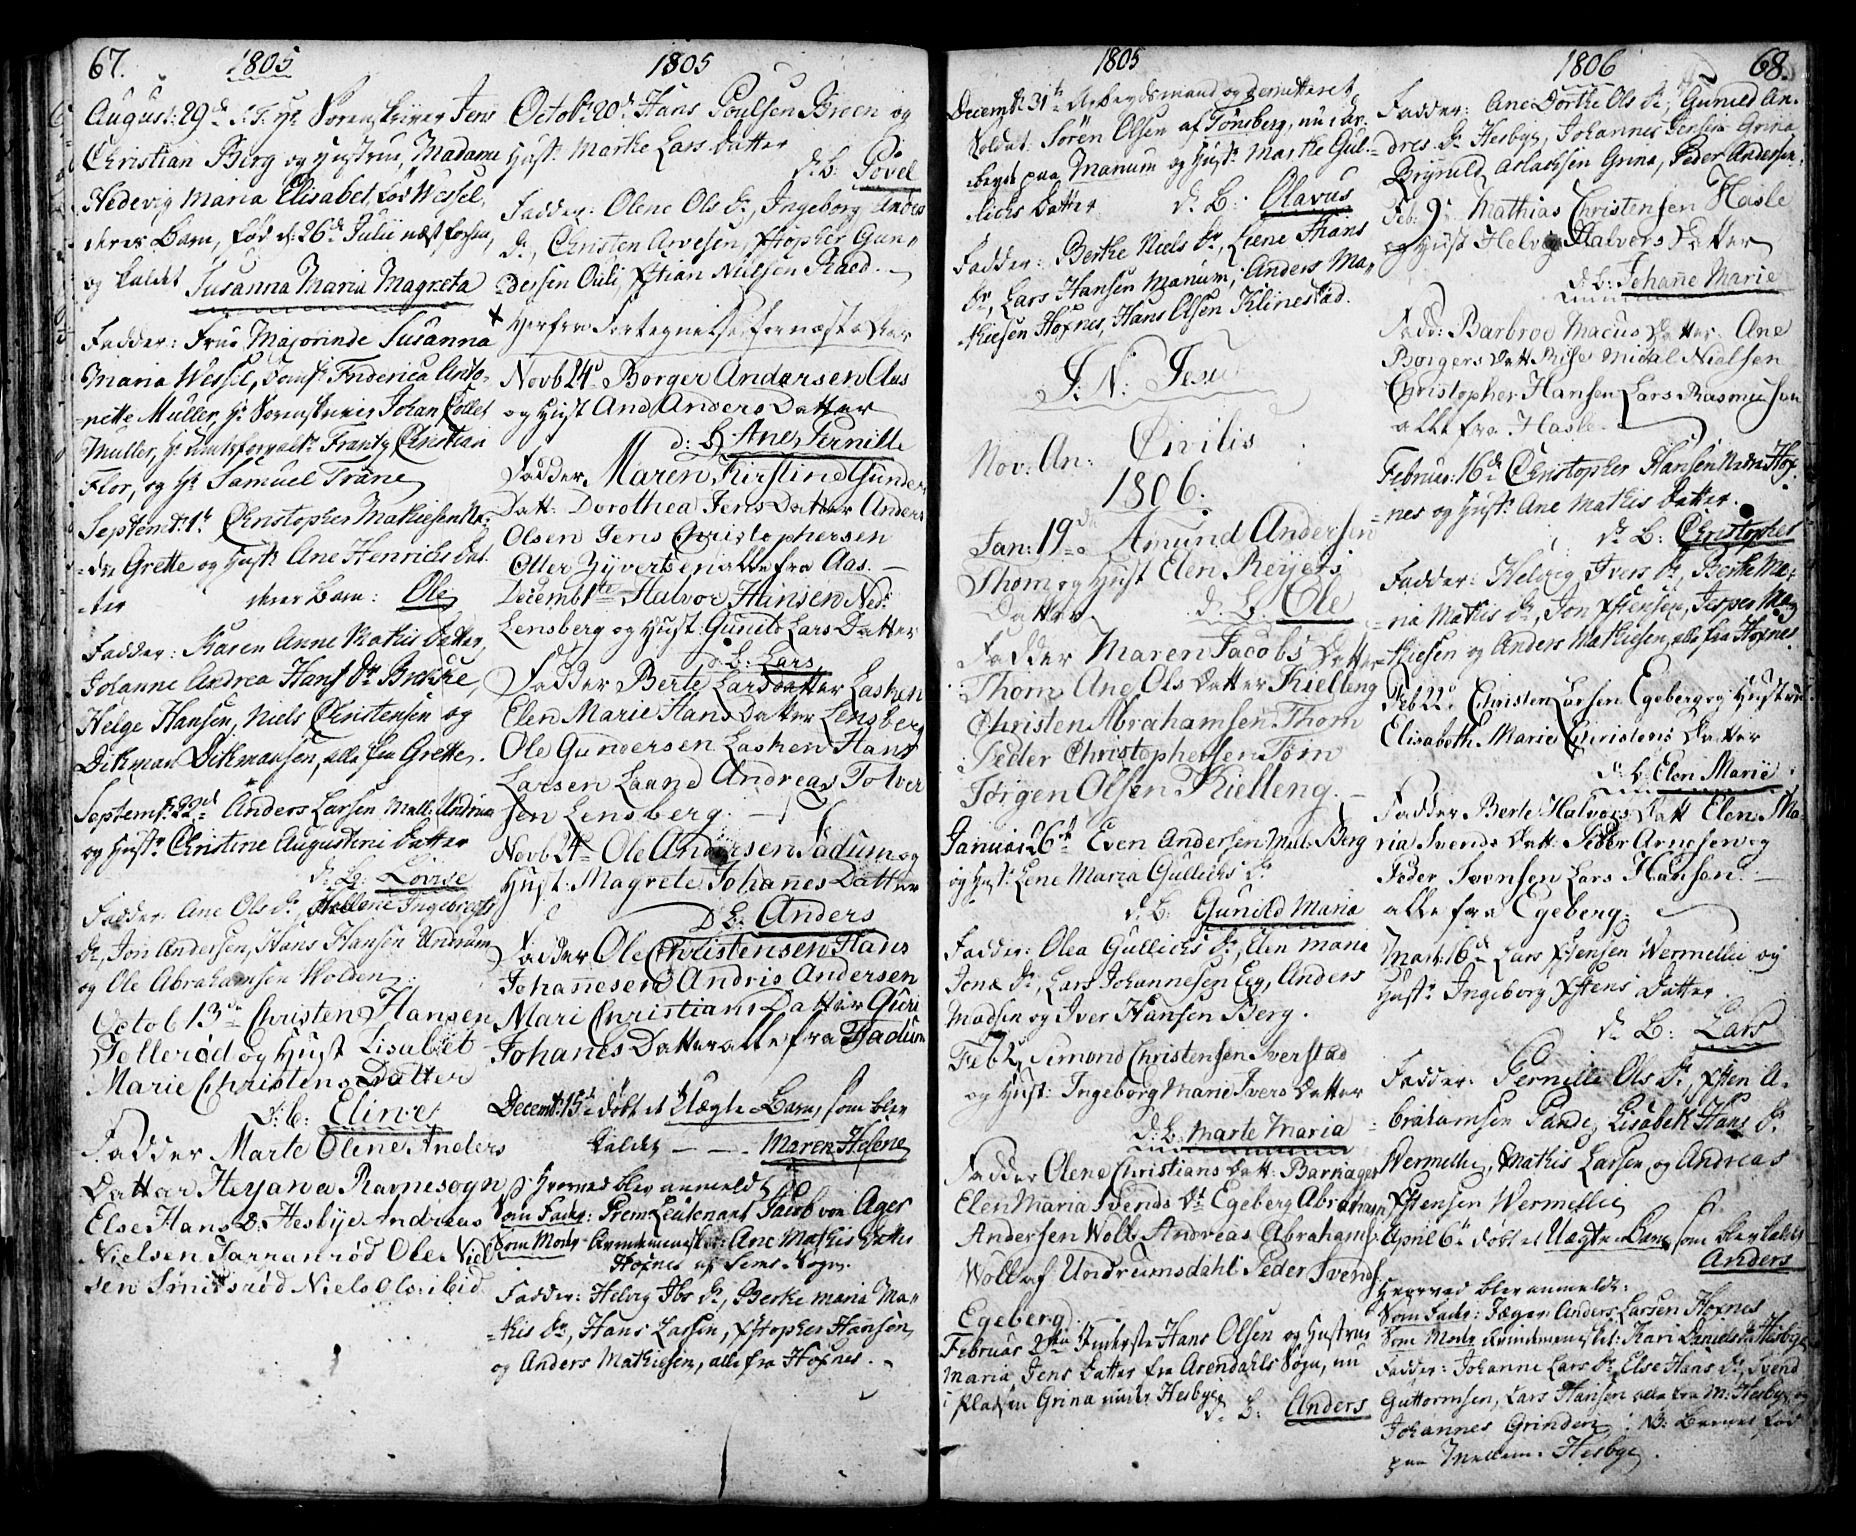 67.
1805
August: 29de S: T: Hr Sorenskriver Jens
Christian Berg og Hustrue, Madame
Hedevig Maria Elisabet, fød Wessel,
deres Barn, fød d: 26de Julii næst forhen,
og kaldet Susanna Maria Magreta
Fadder: Frue Majorinde Susanna
Maria Wessel, Friderica Anto-
nette Müller, Hr Sorenskriver Johan Collet
Müller, Hr Christian
Flor, og Hr Samuel Trane
Septembr 1te Christopher Mathiesen Ne-
den Grette og Hustr Ane Henrichs Dat
ter deres Barn: Ole
Fadder: Karen Anne Mathis Datter,
Johanne Andrea Hans Dr Brekke,
Helge Hansen, Niels Christensen og
Dithman Dithmansen, alle fra Grette.
Septembr 22de Anders Larsen Mell: Undrum
og Hustr Christine Augustini Datter
d: B: Lovise
Fadder: Ane Ols Dr, Hellene Ingebregts
Dr, Jon Andersen, Hans Hansen Undrum
og Ole Abrahamsen Wolden
Octob 13de Christen Hansen
Jellerød og Hust Lisabet
Marie Christens Datter
d: B: Eline
Fadder Marte Oline Anders
Datter Ramnesogn
Else Hans D: Hesbye Andreas
Nielsen Tarranrød Ole Niel
sen Smidsrød Niels Ols: ibid
1805
Octobr 20de Hans Poulsen Breen og
Hustr Marthe Lars Datter
d: B: Povel
Fadder: Olene Ols Dr, Ingeborg Anders
Dr, Christen Arvesen, Xstopher Gun-
dersen Ouli, Xstian Nielsen Raed.
Herfra Fortegnelse for næste Aar
Novb 24de Borger Andersen Aas
og Hust And Anders Datter
d: B: Ane Pernille
Fadder Maren Kirstine Gunder
Datt: Dorothea Jens Datter Anders
Olsen Jens Christophersen
Otter Zyvertsen alle fra Aas.
Decemb 1te Halvor Hansen Ned:
Lensberg og Hust: Gunild Lars Datter
d: B: Lars
Fadder Berte Lars Datter Lasken
Elen Marie Hans Datter Lensberg
Ole Gundersen Lasken Hans
Larsen Laane Andreas Tolver
sen Lensberg.
Novb 24de Ole Andersen Fadum og
Hust: Magrete Johannes Datter
D B: Anders
Fadder Ole Christensen Hans
Johannesen Andris Andersen
Mari Christians Datter Guri
Johanes Datter alle fra Fadum
Decembr 15de døbt et Uægte Barn, som blev
kaldet — — Maren Helene
hvorved blev anmeldt
Som Fader: Prem: Lieutenant Jacob von Ager
Som Moder Ane Mathis Datter
Hofnes af Sems Sogn.
Fadder: Helvig Ibs Dr, Berthe Maria Ma-
this Dr, Hans Larsen, Xstopher Hansen,
og Anders Mathiesen, alle fra Hofnes.
1805
Decembr 31te Arbeydsmand og permitteret
Soldat Søren Olsen af Tønsberg, nu i Ar-
beyde paa Manum og Hustr Marthe Gul-
lichs Datter d: B: Olavus
Fadder: Berthe Niels Dr, Leene Hans
Dr, Lars Hansen Manum, Anders Ma-
thiesen Hofnes, Hans Olsen Klinestad.
J: N: Jesu
Nov: An: Civilis
1806.
Jan: 19de Amund Andersen
Thom og Hust Elen Reyers
Datter d: B: Ole
Fadder Maren Jacobs Datter
Thom Ane Ols Datter Kielleng
Christen Abrahamsen Thom
Peder Christophersen Tom
Jørgen Olsen Kielleng.
Januar 26de Even Andersen Mel: Berg
og Hustr Lene Maria Gullichs Dr
d: B: Gunild Maria
Fadder: Olea Gullichs Dr, Elen Maria
Jonæ Dr, Lars Johannesen Eeg, Anders
Madsen og Iver Hansen Berg.
Feb 2 Simond Christensen Iverstad
og Hust: Ingeborg Marie Ivers Datter
d: B: Marte Maria
Fadder Olene Christians Datt: Barkager
Elen Maria Svends Dr Egeberg Abraham
Andersen Wold Andreas Abrahams:
Woll af Undrumsdahl Peder Svends:
Egeberg
Februar 2den Inderste Hans Olsen og Hustrue
Maria Jens Datter fra Arendahls Sogn, nu
i Pladsen Grina under Hesbye
d: B: Anders
1806
68.
Fadder: Ane Dorthe Ols Dr, Gunild An-
dres Dr Hesbye, Johannes Jensen Grina,
Brynild Aslachsen Grina, Peder Andersen.
Feb: 9de Mathias Christensen Hasle
og Hust Helvig Halvors Datter
d: B: Johanne Marie
Fadd: Barbroe Macus Datter Ane
Borgers Datt Rise Midal Nielsen
Christopher Hansen Lars Rasmusen
alle fra Hasle.
Februar: 16de Christopher Hansen Nedre Hof-
nes og Hustr Ane Mathis Datter.
d: B: Christopher
Fadder: Helvig Ivers Dr, Berthe Ma-
ria Mathis Dr, Jon Xstensen, Jesper Ma-
thiesen og Anders Mathiesen, alle fra Hofnes.
Feb 22de Christen Larsen Egeberg og Hustrue
Elisabeth Marie Christens Datter
d: B: Elen Marie
Fadder Berte Halvors Datt Elen Ma-
ria Svends Datt Peder Arnesen og
Peder Svensen Lars Hansen
alle fra Egeberg.
Mart: 16de Lars Xstensen Wermellie og
Hustr Ingeborg Xstens Datter
d: B: Lars
Fadder: Pernille Ols Dr, Xsten A-
brahamsen Pande, Lisabeth Hans Dr
Wermellie, Mathis Larsen og Andreas
Xstensen Wermellie
April 6te døbt et Uægte Barn, som blev kaldt
Anders
Hvorved blev anmeldt:
Som Fader: Jæger Anders Larsen Hofnes
Som Moder Kari Daniels Dr Hesbye
Fadder: Johanne Lars Dr, Else Hans Dr, Svend
Guttormsen, Lars Hansen alle fra M: Hesbye, og
Johannes Grinden. NB: Barnet fød
paa Mellem-Hesbye.